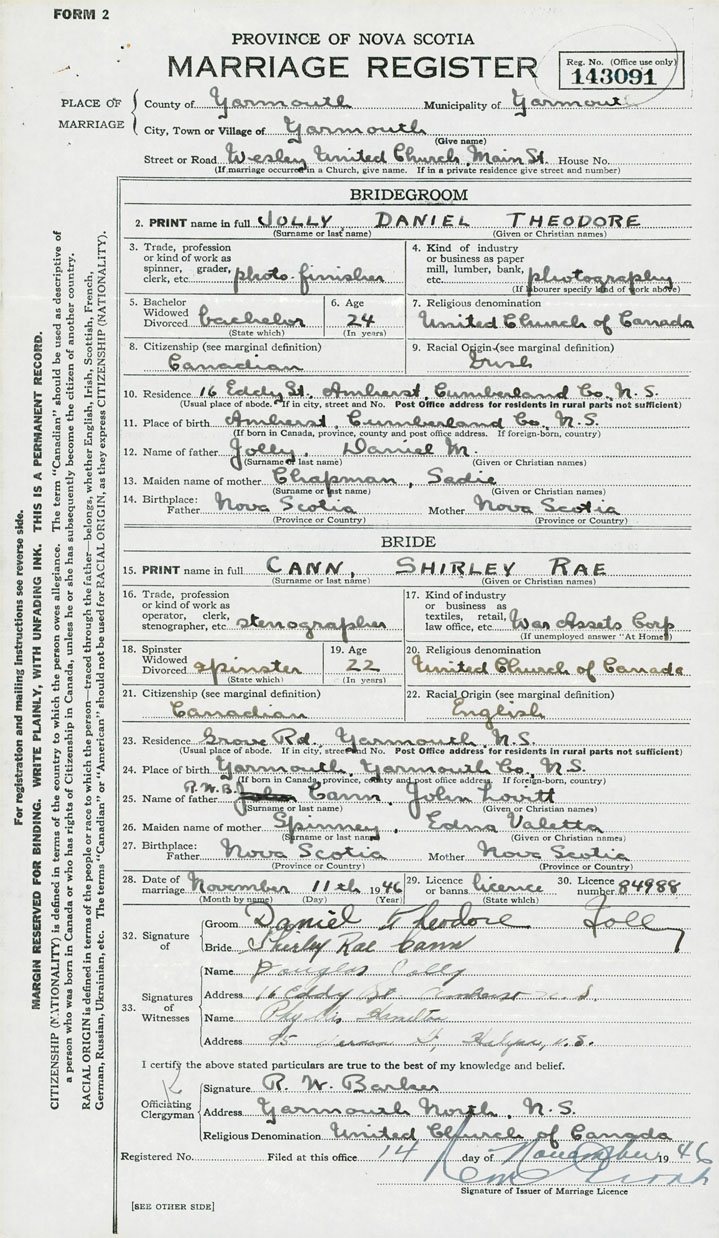 FORM 2
PROVINCE OF NOVA SCOTIA
MARRIAGE REGISTER
Reg. No. (Office use only)
143091
PLACE OF MARRIAGE
County of Yarmouth Municipality of Yarmouth
City, Town or Village of Yarmouth
(Give name)
Street or Road Wesley United Church, Main St. House No.
(If marriage occurred in a Church, give name. If in a private residence give street and number)
BRIDEGROOM
2. PRINT name in full JOLLY DANIEL THEODORE
(Surname or last name) (Given or Christian names)
3. Trade, profession or kind of work as spinner, grader, clerk, etc. photo-finisher
4. Kind of industry or business as paper mill, lumber, bank, etc. photography
(If labourer specify kind of work above)
5. Bachelor Widowed Divorced bachelor
(State which)
6. Age 24
(In years)
7. Religious denomination
United Church of Canada
8. Citizenship (see marginal definition)
Canadian
9. Racial Origin (see marginal definition)
Irish
10. Residence 16 Eddy St. Amherst, Cumberland Co., N.S.
(Usual place of abode. If in city, street and No. Post Office address for residents in rural parts not sufficient)
11. Place of birth Amherst, Cumberland Co., N.S.
(If born in Canada, province, county and post office address. If foreign-born, country)
12. Name of father Jolly, Daniel M.
(Surname or last name) (Given or Christian names)
13. Maiden name of mother Chapman, Sadie
(Surname or last name) (Given or Christian names)
14. Birthplace: Father Nova Scotia Mother Nova Scotia
(Province or Country) (Province or Country)
BRIDE
15. PRINT name in full CANN, SHIRLEY RAE
(Surname or last name) (Given or Christian names)
16. Trade, profession or kind of work as operator, clerk, stenographer, etc. stenographer
17. Kind of industry or business as textiles, retail, law office, etc. War Assets Corp
(If unemployed answer "At Home")
18. Spinster Widowed Divorced spinster
(State which)
19. Age 22
(In years)
20. Religious denomination
United Church of Canada
21. Citizenship (see marginal definition)
Canadian
22. Racial Origin (see marginal definition)
English
23. Residence Grove Rd, Yarmouth, N.S.
(Usual place of abode. If in city, street and No. Post Office address for residents in rural parts not sufficient)
24. Place of birth Yarmouth, Yarmouth Co., N.S.
(If born in Canada, province, county and post office address. If foreign-born, country)
R.W.B.
25. Name of father Cann, John Lovitt
(Surname or last name) (Given or Christian names)
26. Maiden name of mother Spinney, Edna Valetta
(Surname or last name) (Given or Christian names)
27. Birthplace: Father Nova Scotia Mother Nova Scotia
(Province or Country) (Province or Country)
28. Date of marriage November 11th 1946
(Month by name) (Day) (Year)
29. Licence or banns licence
(State which)
30. Licence number 84988
32. Signature of
Groom Daniel Theodore Jolly
Bride Shirley Rae Cann
33. Signatures of Witnesses
Name Douglas Jolly
Address 16 Eddy St Amherst N.S.
Name Phyllis Hamilton
Address 95 St, Halifax, N.S.
I certify the above stated particulars are true to the best of my knowledge and belief.
Officiating Clergyman
Signature R. W. Barker
Address Yarmouth North, N.S.
Religious Denomination United Church of Canada
Registered No. Filed at this office 14 day of November 1946
Signature of Issuer of Marriage Licence
[SEE OTHER SIDE]
For registration and mailing instructions see reverse side.
MARGIN RESERVED FOR BINDING. WRITE PLAINLY, WITH UNFADING INK. THIS IS A PERMANENT RECORD.
CITIZENSHIP (NATIONALITY) is defined in terms of the country to which the person owes allegiance. The term "Canadian" should be used as descriptive of
a person who was born in Canada or who has rights of Citizenship in Canada, unless he or she has subsequently become the citizen of another country.
RACIAL ORIGIN is defined in terms of the people or race to which the person—traced through the father—belongs, whether English, Irish, Scottish, French,
German, Russian, Ukrainian, etc. The terms "Canadian" or "American" should not be used for RACIAL ORIGIN, as they express CITIZENSHIP (NATIONALITY).